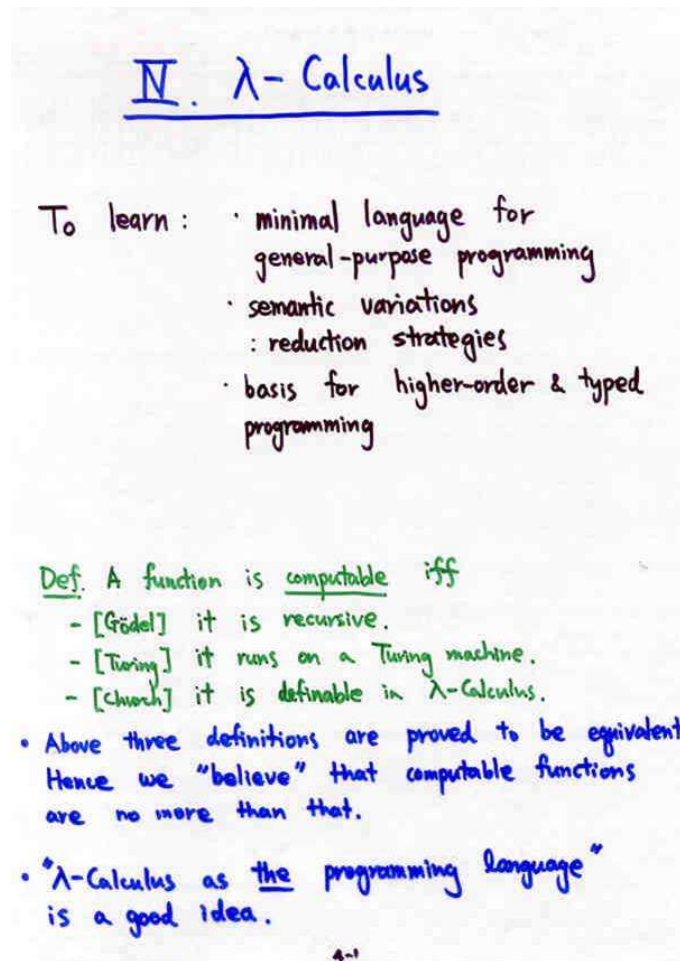 IV. λ-Calculus
To learn : · minimal language for
general-purpose programming
· semantic variations
: reduction strategies
· basis for higher-order & typed
programming
Def. A function is computable iff
- [Gödel] it is recursive.
- [Turing] it runs on a Turing machine.
- [Church] it is definable in λ-Calculus.
• Above three definitions are proved to be equivalent
Hence we "believe" that computable functions
are no more than that.
• "λ-Calculus as the programming language"
is a good idea.
4-1